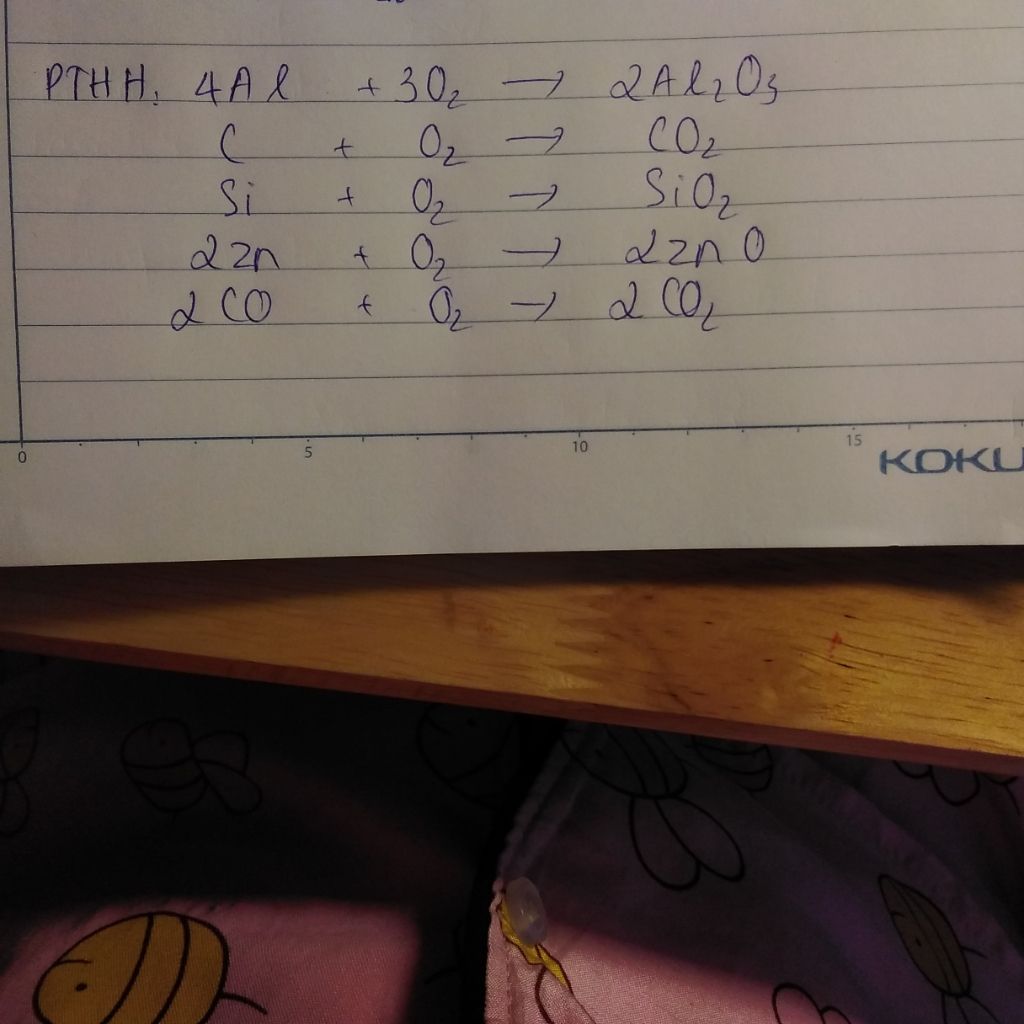 PTHH: 4Al + 3O₂ → 2Al₂O₃
C + O₂ → CO₂
Si + O₂ → SiO₂
2zn + O₂ → 2znO
2CO + O₂ → 2CO₂
0 5 10 15
KOKU